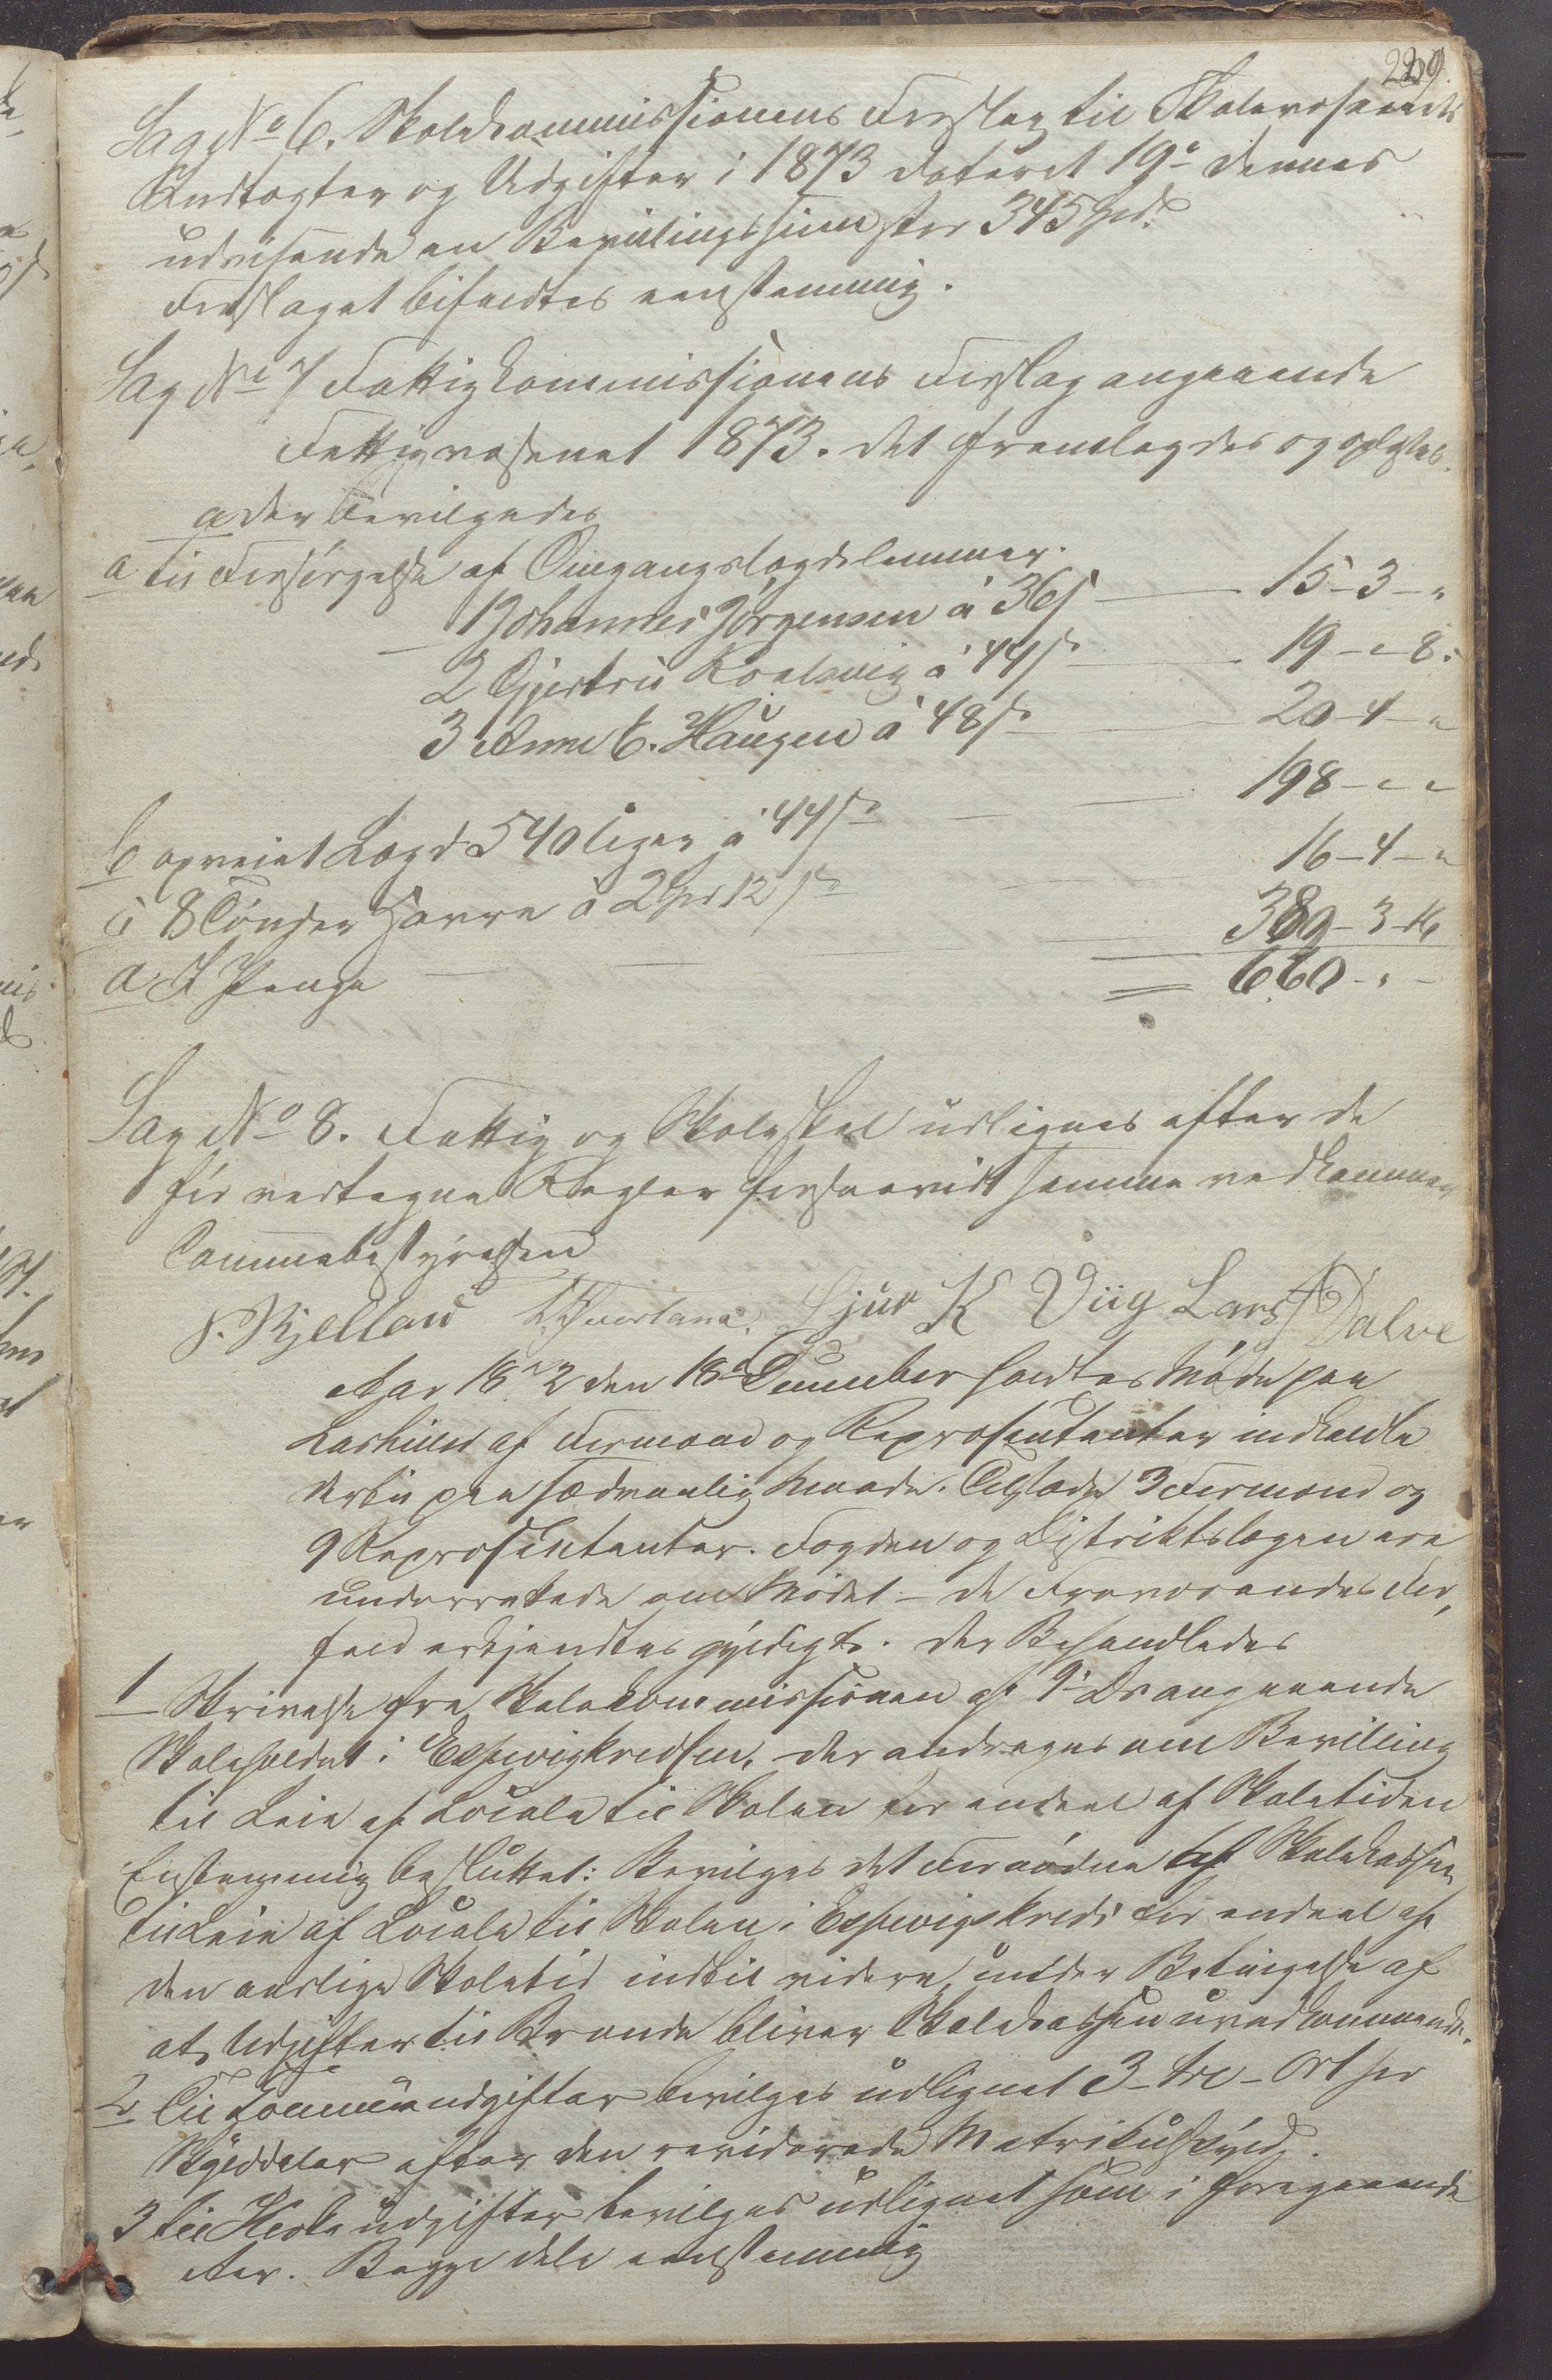 229.
Sag No 6. Skolekommissionens Forslag til Skolevæsenets
Indtægter og Udgifter i 1873 dateret 19e dennes
udvisende en Bevillingssum stor 345 Spd.
Forslaget bifaldtes eenstemmig.
Sag No 7 Fattigkommissionens Forslag angaaende
Fattigvæsenet 1873. det fremlagdes og oplæstes.
a der bevilgedes
a til Forsørgelse af Omgangslægdslemmer.
1 Johannes Jørgensen á 36 s 15-3-"
2 Gjertrû Roalsvig á 44 s 19-"-8.
3 Anne C. Haugen á 48 s 20-4-"
198-"-"
b opveiet Lægd 540 Uger á 44 s
16-4-"
c 8 Tønder Havre á 2 Spd 12 s
389-3-16
d I Penge 660-"-
Sag No 8. Fattig og Skoleskat udlignes efter de
før vedtagne Regler forsaavidt samme vedkommer
Communebestyrelsen
J. Kjelland Sjur K Viig Lars A Dalve
Aar 1872 den 18de December holdtes Møde paa
af Formænd og Repræsentanter indkaldte
dertil paa sædvanlig Maade. Tilstede 3 Formænd og
9 Repræsentanter. Fogden og Distriktslægen ere
underrettede om Mødet - de Fraværendes For,
fald erkjendtes gyldigt. der Behandledes
1 Skrivelse fra Skolekommissionen af 9de Ds angaaende
Skoleholdet i Espevigkredsen, der andrages om Bevilling
til Leie af Locale til Skolen for endeel af Skoletiden
Enstemmig besluttet: Bevilges det Fornødne af Skolekassen
til Leie af Locale til Skolen i Espevigskreds for endeel af
den aarlige Skoletid indtil videre, under Betingelse af
at Udgifter til Brænde bliver Skolekassen uvedkommende.
2 Til Communeudgifter bevilges udlignet 3 - tre - Ort per
Skylddaler efter den reviderede Matrikulskyld.
3 til udgifter bevilges udlignet som i foregaaende
Aar. Begge dele eenstemmig